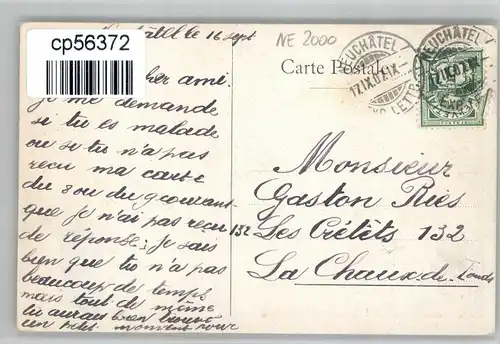 cp56372
NE 2000
Carte Postale
NEUCHÂTEL
17.IX.07
NEUCHÂTEL
le 16 sept
cher ami.
je me demande
si tu es malade
ou si tu n'a pas
recu ma carte
du 8 ou du 9 courant
que je n'ai pas recu
de réponse; je sais
bien que tu n'a pas
beaucoup de temps
mais tout de même
tu aurais bien trouvé
un petit moment pour
Monsieur
Gaston Ries
132 Les Crétêts 132
La Chaux-de-Fonds